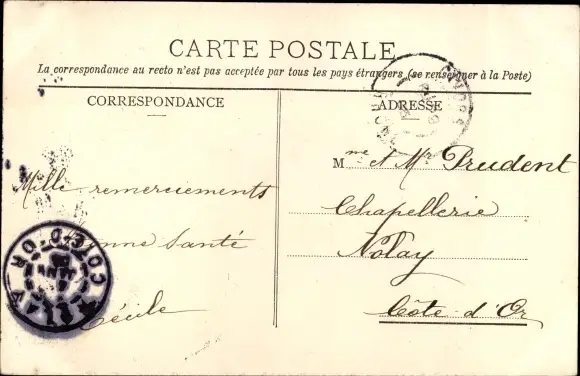 CARTE POSTALE
La correspondance au recto n'est pas acceptée par tous les pays étrangers (se renseigner à la Poste)
CORRESPONDANCE
Mille remerciements
Bonne Santé
Cécile
ADRESSE
Mme et Mr Prudent
Chapellerie
Nolay
Côte d'Or
COTE-D'OR